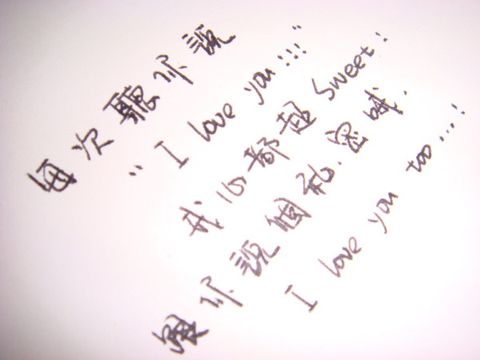 每次聽你說
"I love you!!!"
我心都超 Sweet!
跟你說個秘.密哦.
I love you too...!